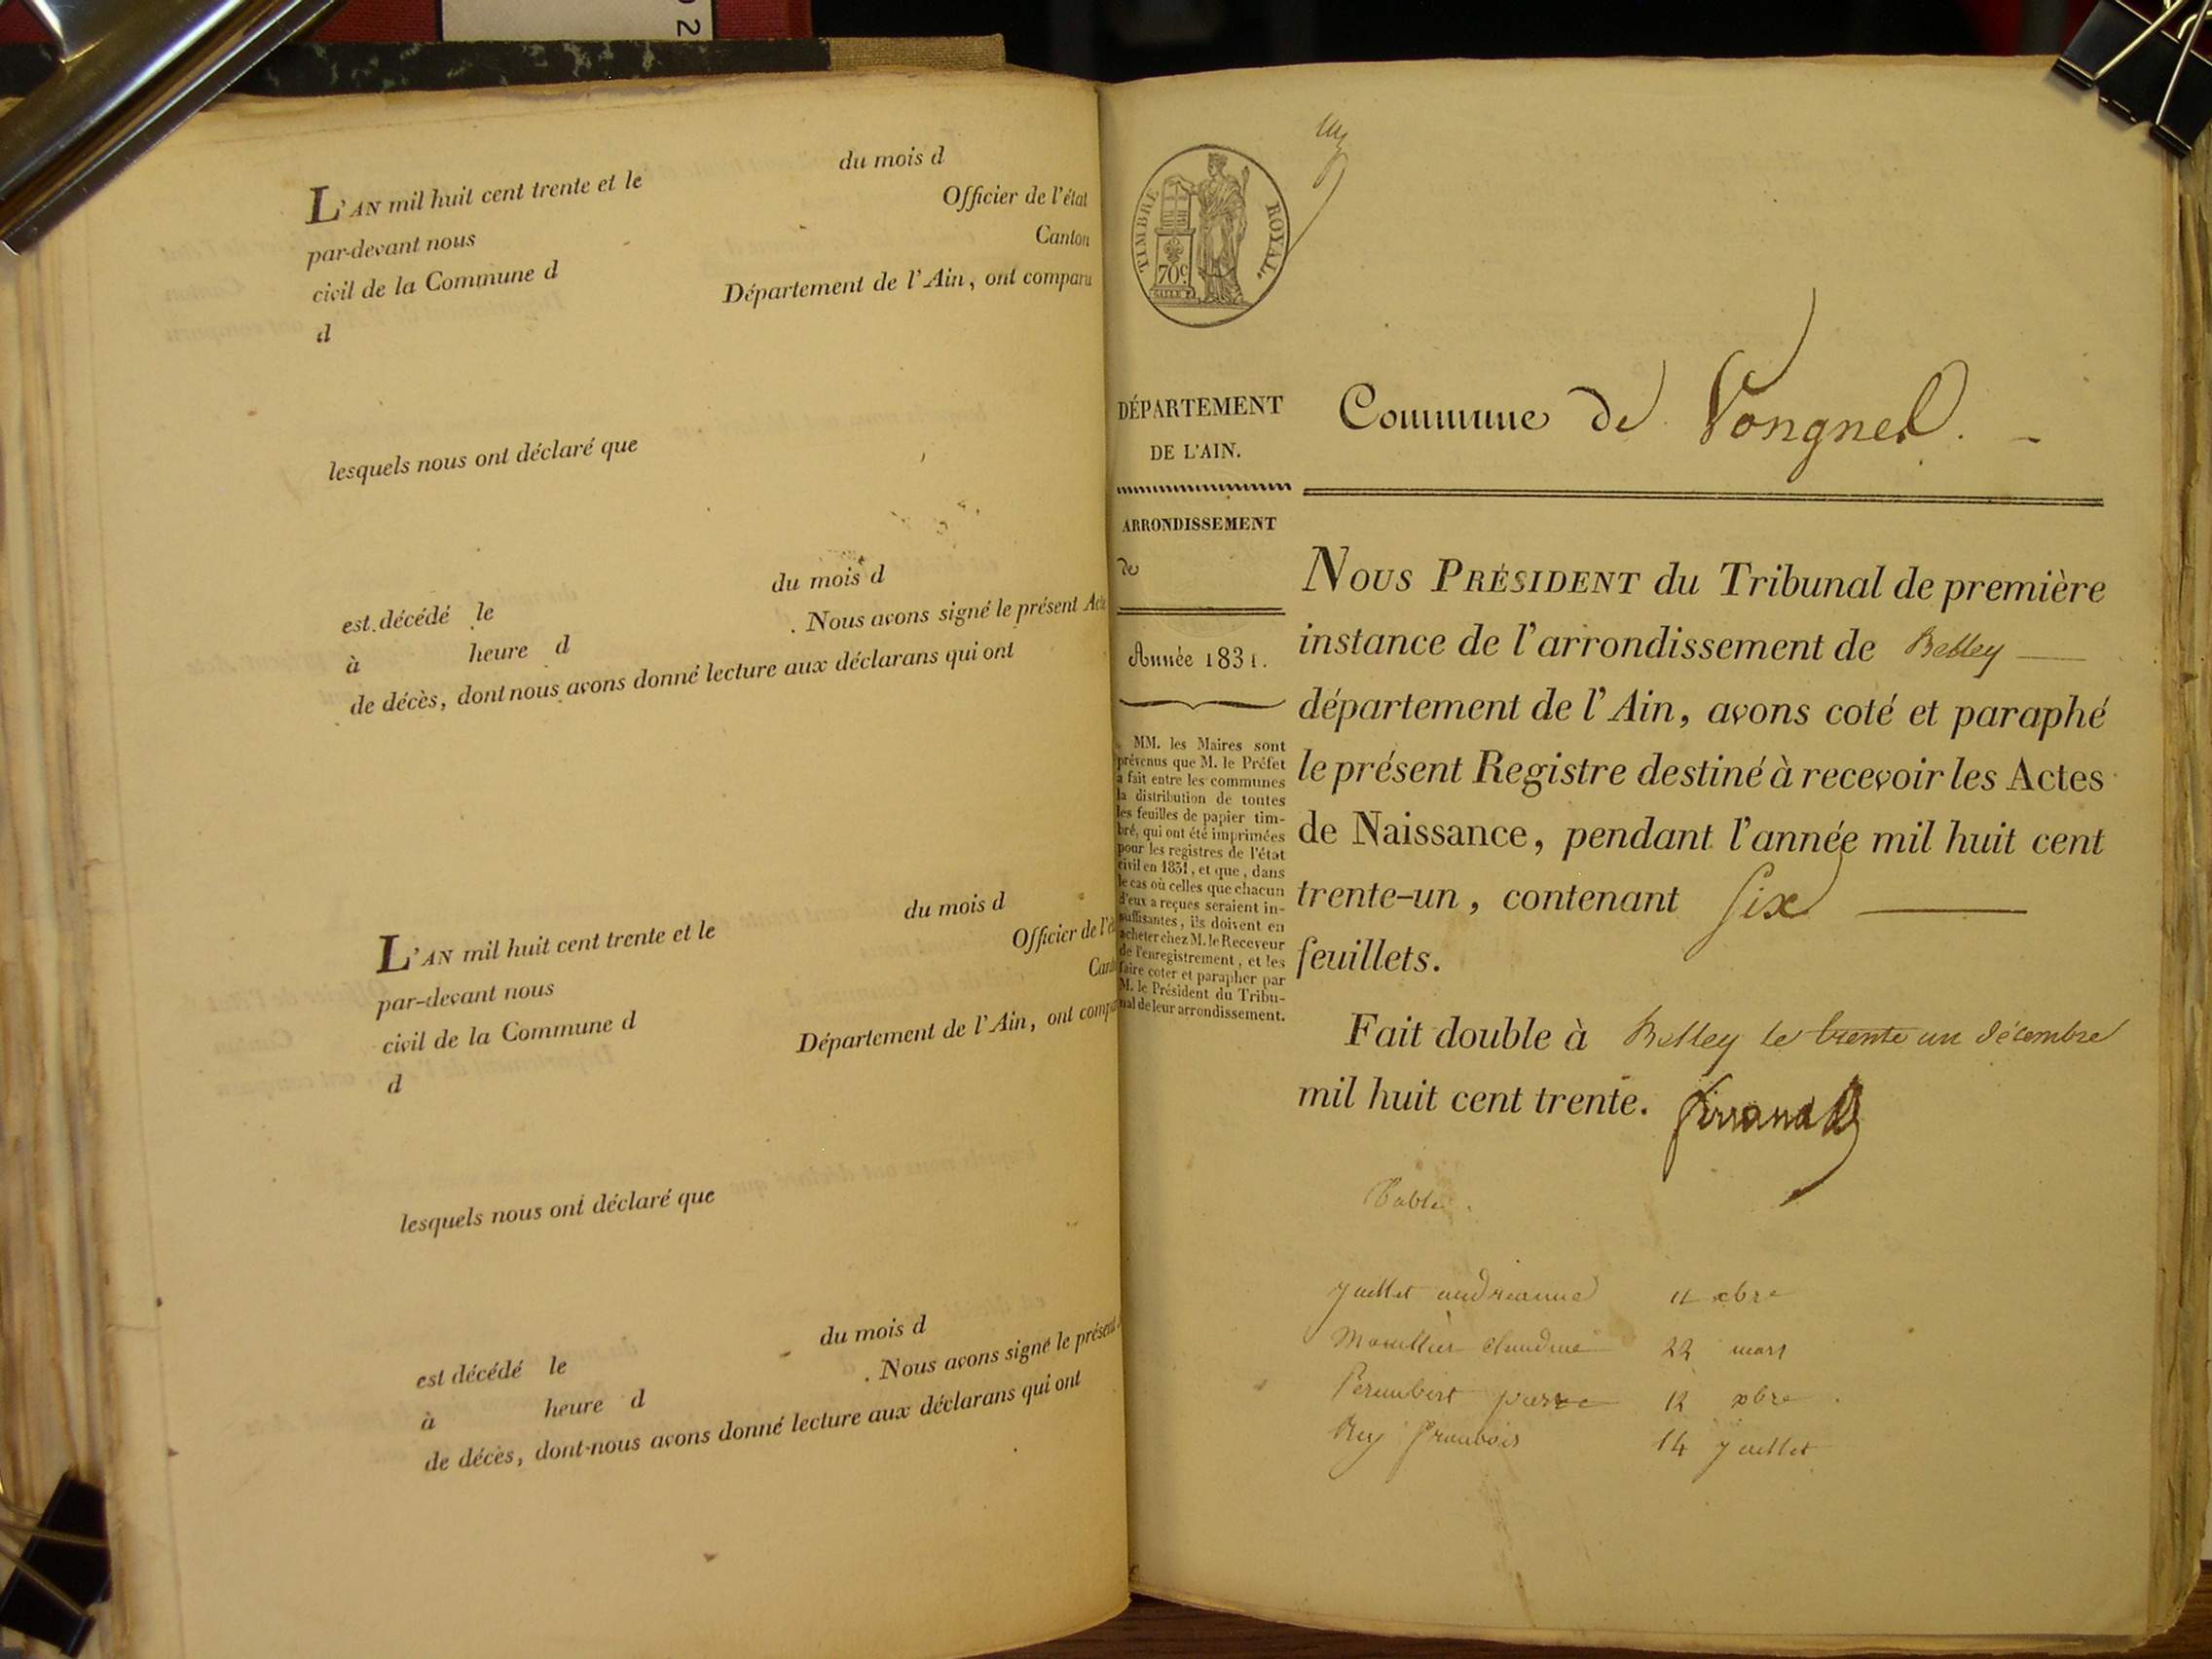 02
L'AN mil huit cent trente et le du mois d
par-devant nous Officier de l'état
civil de la Commune d Canton
d Département de l'Ain, ont comparu
lesquels nous ont déclaré que
est décédé le du mois d
à heure d . Nous avons signé le présent Acte
de décès, dont nous avons donné lecture aux déclarans qui ont
L'AN mil huit cent trente et le du mois d
par-devant nous Officier de l'é
civil de la Commune d Cant
d Département de l'Ain, ont comp
lesquels nous ont déclaré que
est décédé le du mois d
à heure d . Nous avons signé le présent
de décès, dont nous avons donné lecture aux déclarans qui ont
TIMBRE ROYAL.
70c
DÉPARTEMENT
DE L'AIN.
ARRONDISSEMENT
de
Année 1831.
MM. les Maires sont
prévenus que M. le Préfet
a fait entre les communes
la distribution de toutes
les feuilles de papier tim-
bré, qui ont été imprimées
pour les registres de l'état
civil en 1831, et que, dans
le cas où celles que chacun
d'eux a reçues seraient in-
suffisantes, ils doivent en
acheter chez M. le Receveur
de l'enregistrement, et les
faire coter et parapher par
M. le Président du Tribu-
nal de leur arrondissement.
Commune de Vongnes.
NOUS PRÉSIDENT du Tribunal de première
instance de l'arrondissement de Belley
département de l'Ain, avons coté et paraphé
le présent Registre destiné à recevoir les Actes
de Naissance, pendant l'année mil huit cent
trente-un, contenant Six
feuillets.
Fait double à Belley le trente un décembre
mil huit cent trente.
Table.
Juillet andreanne 11 xbre
Claudine 22 mars
pierre 12 xbre
Rey françois 14 juillet